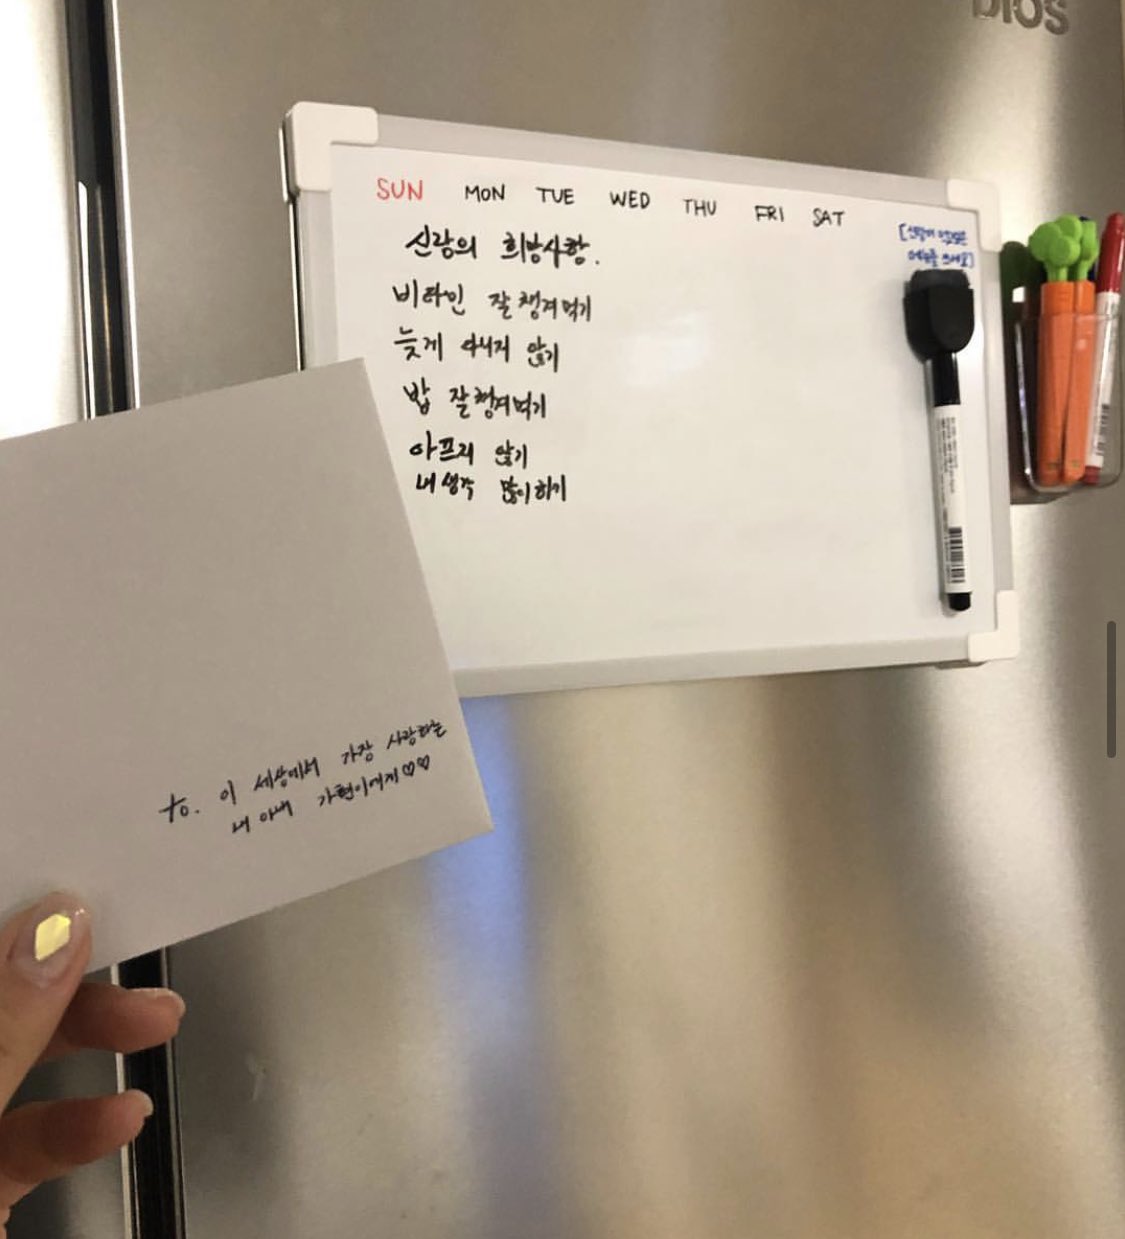 bios
SUN MON TUE WED THU FRI SAT
신랑의 희망사항.
비타민 잘 챙겨먹기
늦게 다니지 않기
밥 잘챙겨먹기
아프지 않기
내생각 많이하기
to. 이 세상에서 가장 사랑하는
내 아내 가현이에게♡♡